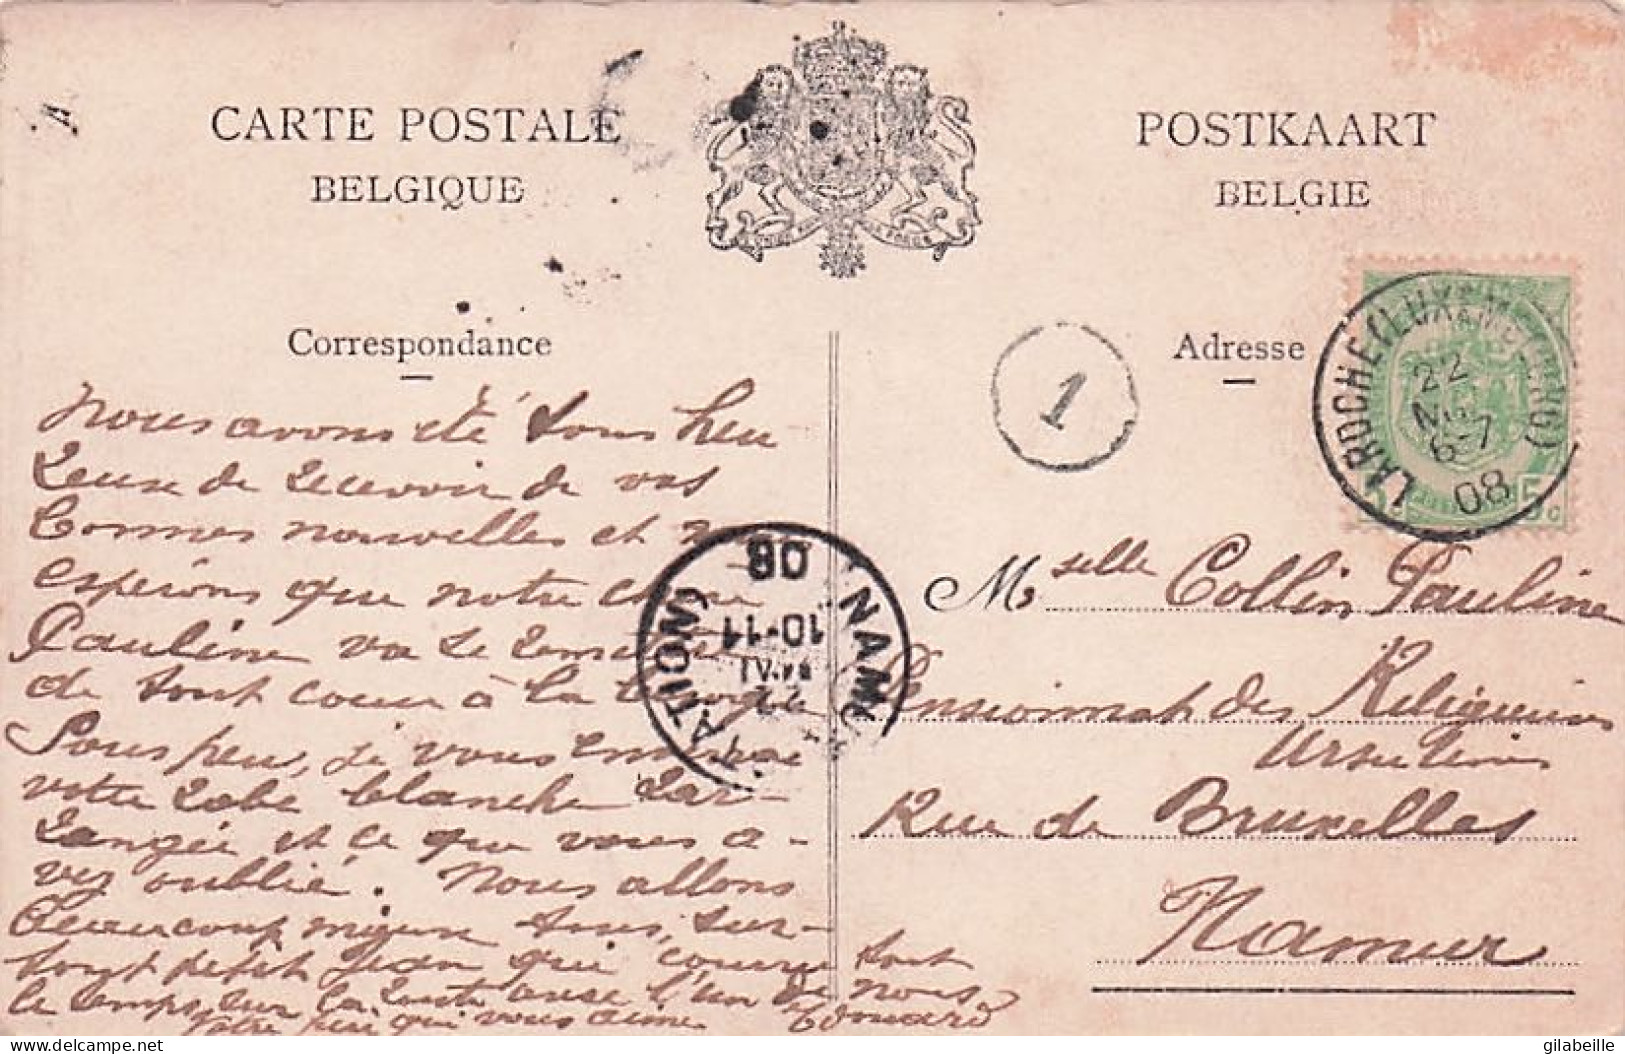 CARTE POSTALE
BELGIQUE
POSTKAART
BELGIE
Correspondance
Adresse
1
LAROCHE (LUXEMBOURG)
22
6-7
08
5 c
Nous avons été tous heu
reuse de recevoir de vos
bonnes nouvelles et
esperons que notre chère
Pauline va se remettre
de tout coeur à la
Sous peu, je vous enverrai
votre robe blanche
et ce que vous a-
vez oublié. Nous allons
beaucoup mieux tous, sur-
tout petit Jean qui courre tout
le temps sur la route avec l'un de nous
Votre qui vous aime Edouard
NAMUR STATION
08
10-11
22
Mselle Collin Pauline
Pensionnat des Religieuses
Ursulines
Rue de Bruxelles
Namur
delcampe.net
gilabeille